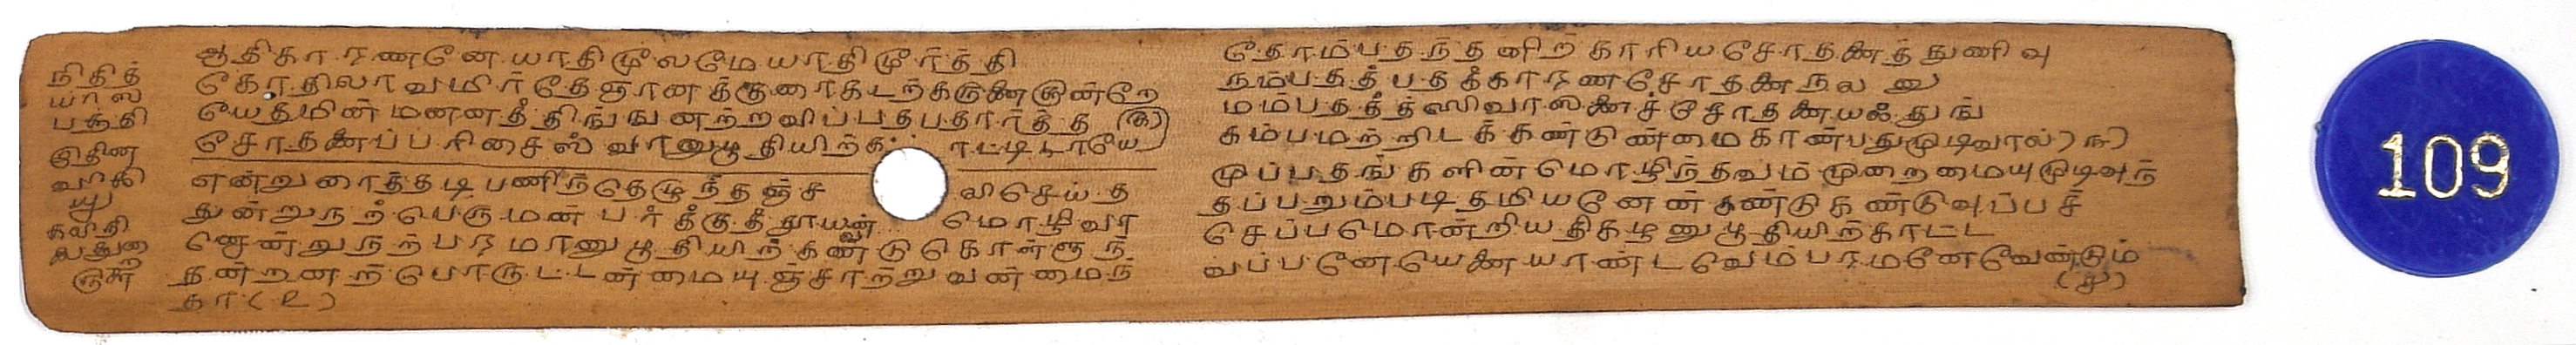 நிதித்
யாஸ
பத்தி
ஆதிகாரணனே யாதிமூலமே யாதிமூர்த்தி
கோதிலா வமிர்தே ஞானக்குரைகடற்கருணைகுன்றே
யேதமின் மனனத்திங்ஙனற்றவிப்பதபதார்த்த (௧)
சோதனைப்பரிசைஸ்வானுபூதியிற்க ாட்டிடாயே
என்றுரைத்தடி பணிந்தெழுந்தஞ்ச லிசெய்த
துன்றுநற் பெருமன்பர்க்குத்தூயன் மொழிவர
னென்றுநற் பரமானுபூதியிற்கண்டுகொள்ளுந்
தன்றனற் பொருட்டன்மையுஞ்சாற்றுவன்மைந்
தா (௨)
தொம்பதந்தனிற் காரிய சோதனைத்துணிவு
நம்பதத்பதக்காரண சோதனை நல
மம்பதத்த்ஸிவாஸனைச் சோதனையகத்துங்
கம்பமற்றிடக்கண்டுண்மைகாண்பதுமுடிவால் (௩)
முப்பதங்களின் மொழிந்தவும் முறைமையுமுடிவுந்
தப்பறும்படி தமியனேன் கண்டுகண்டுவுப்பச்
செப்பமொன்றிய திகழனுபூதியிற்காட்ட
வப்பனேயெனையாண்டவெம்பரமனேவேண்டும்
(௪)
109